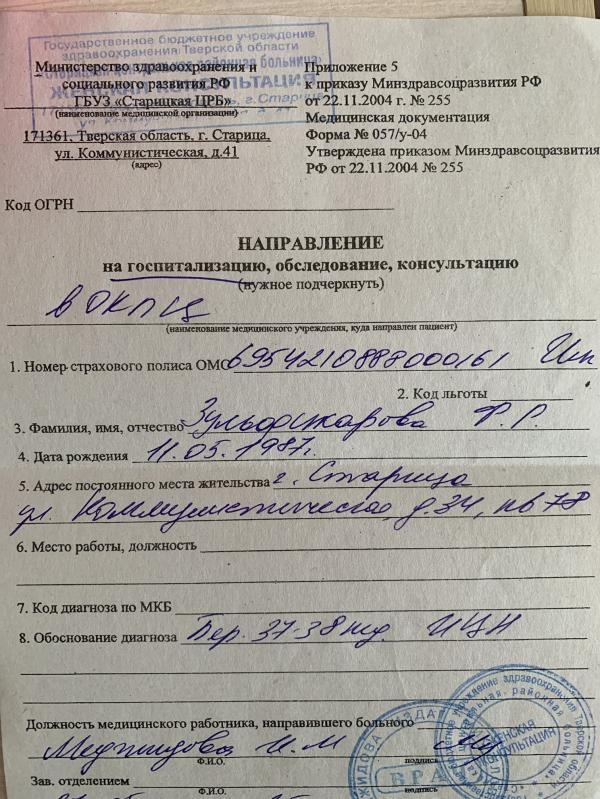 Государственное бюджетное учреждение
здравоохранения Тверской области
«Старицкая центральная районная больница»
ЖЕНСКАЯ КОНСУЛЬТАЦИЯ
Министерство здравоохранения и
социального развития РФ
ГБУЗ «Старицкая ЦРБ»
(наименование медицинской организации)
171361, Тверская область, г. Старица,
ул. Коммунистическая, д.41
(адрес)
Приложение 5
к приказу Минздравсоцразвития РФ
от 22.11.2004 г. № 255
Медицинская документация
Форма № 057/у-04
Утверждена приказом Минздравсоцразвития
РФ от 22.11.2004 № 255
Код ОГРН
НАПРАВЛЕНИЕ
на госпитализацию, обследование, консультацию
(нужное подчеркнуть)
в ОКПЦ
(наименование медицинского учреждения, куда направлен пациент)
1. Номер страхового полиса ОМС 6954210888000161
2. Код льготы
3. Фамилия, имя, отчество Зульфикарова Ф. Г.
4. Дата рождения 11.05.1987г.
5. Адрес постоянного места жительства г. Старица
ул. Коммунистическая, д.34, кв 78
6. Место работы, должность
7. Код диагноза по МКБ
8. Обоснование диагноза Бер. 37-38 нед. ИЦН
Должность медицинского работника, направившего больного
Меджидова И. М
Ф.И.О. подпись
Зав. отделением
Ф.И.О. подпись
ВРАЧ
ЖЕНСКАЯ
КОНСУЛЬТАЦИЯ